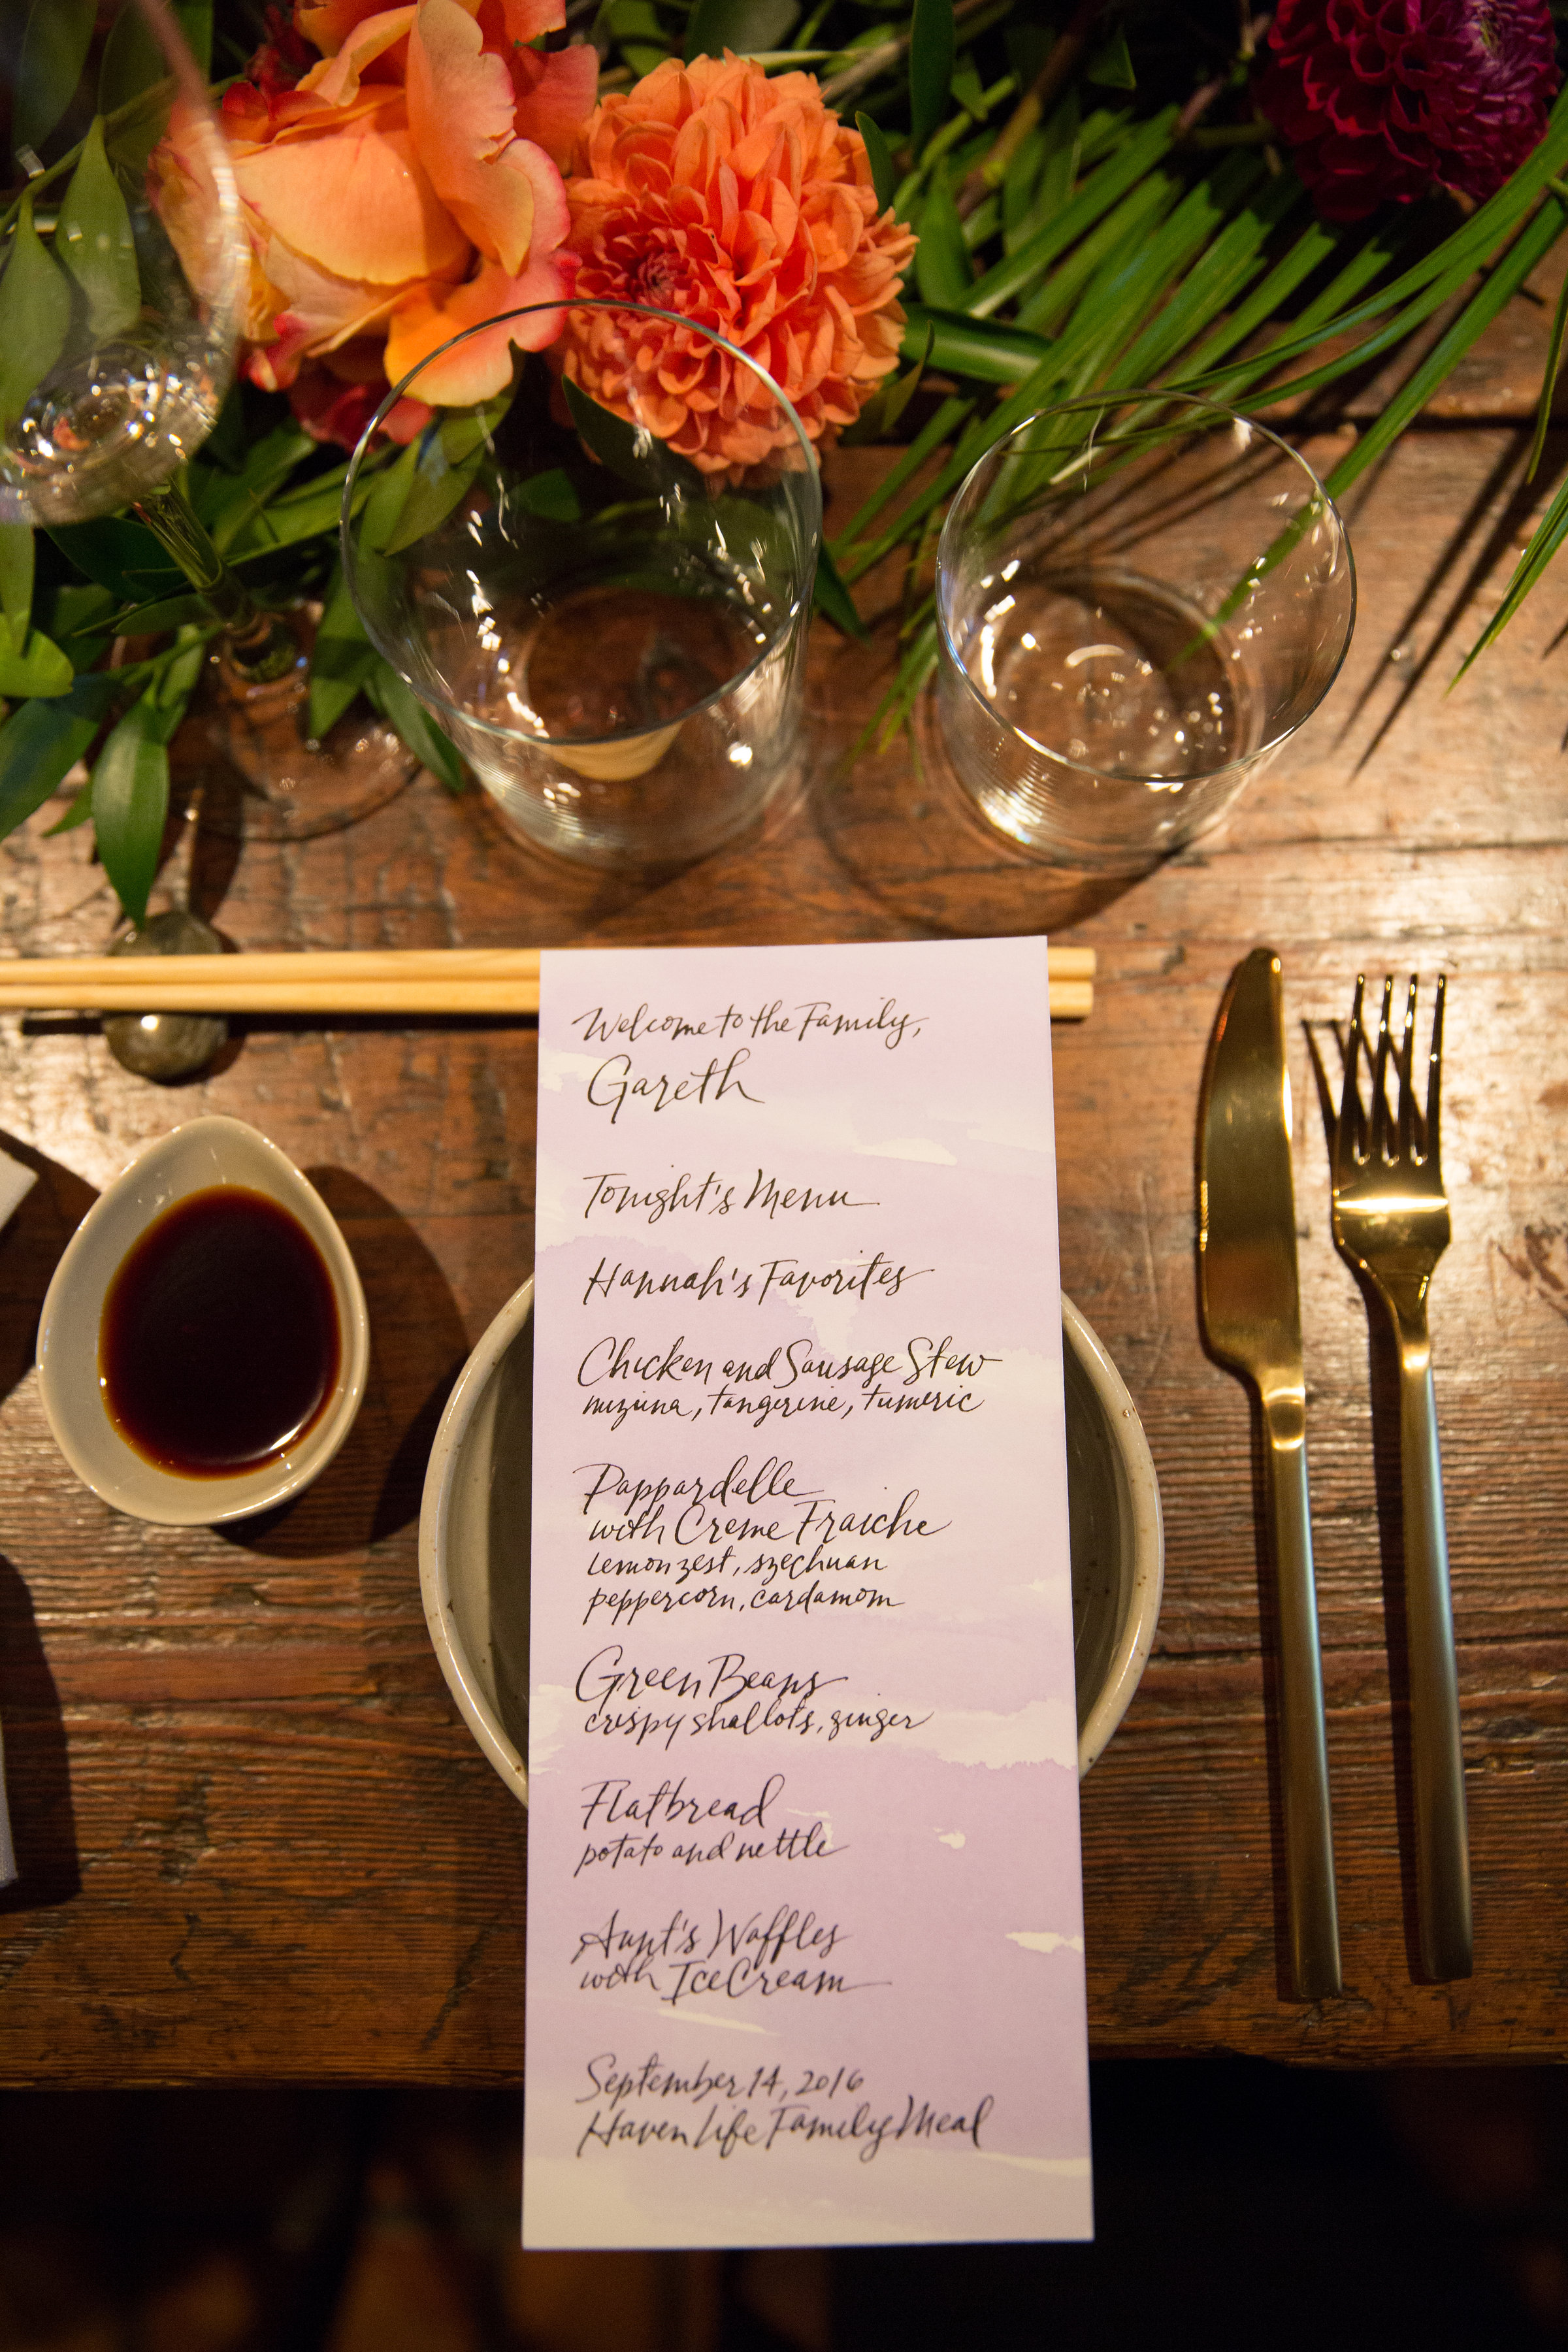 Welcome to the Family,
Gareth
Tonight's Menu
Hannah's Favorites
Chicken and Sausage Stew
mizuna, tangerine, tumeric
Pappardelle
with Creme Fraiche
lemon zest, szechuan
peppercorn, cardamom
Green Beans
crispy shallots, ginger
Flatbread
potato and nettle
Aunt's Waffles
with Ice Cream
September 14, 2016
Haven Life Family Meal